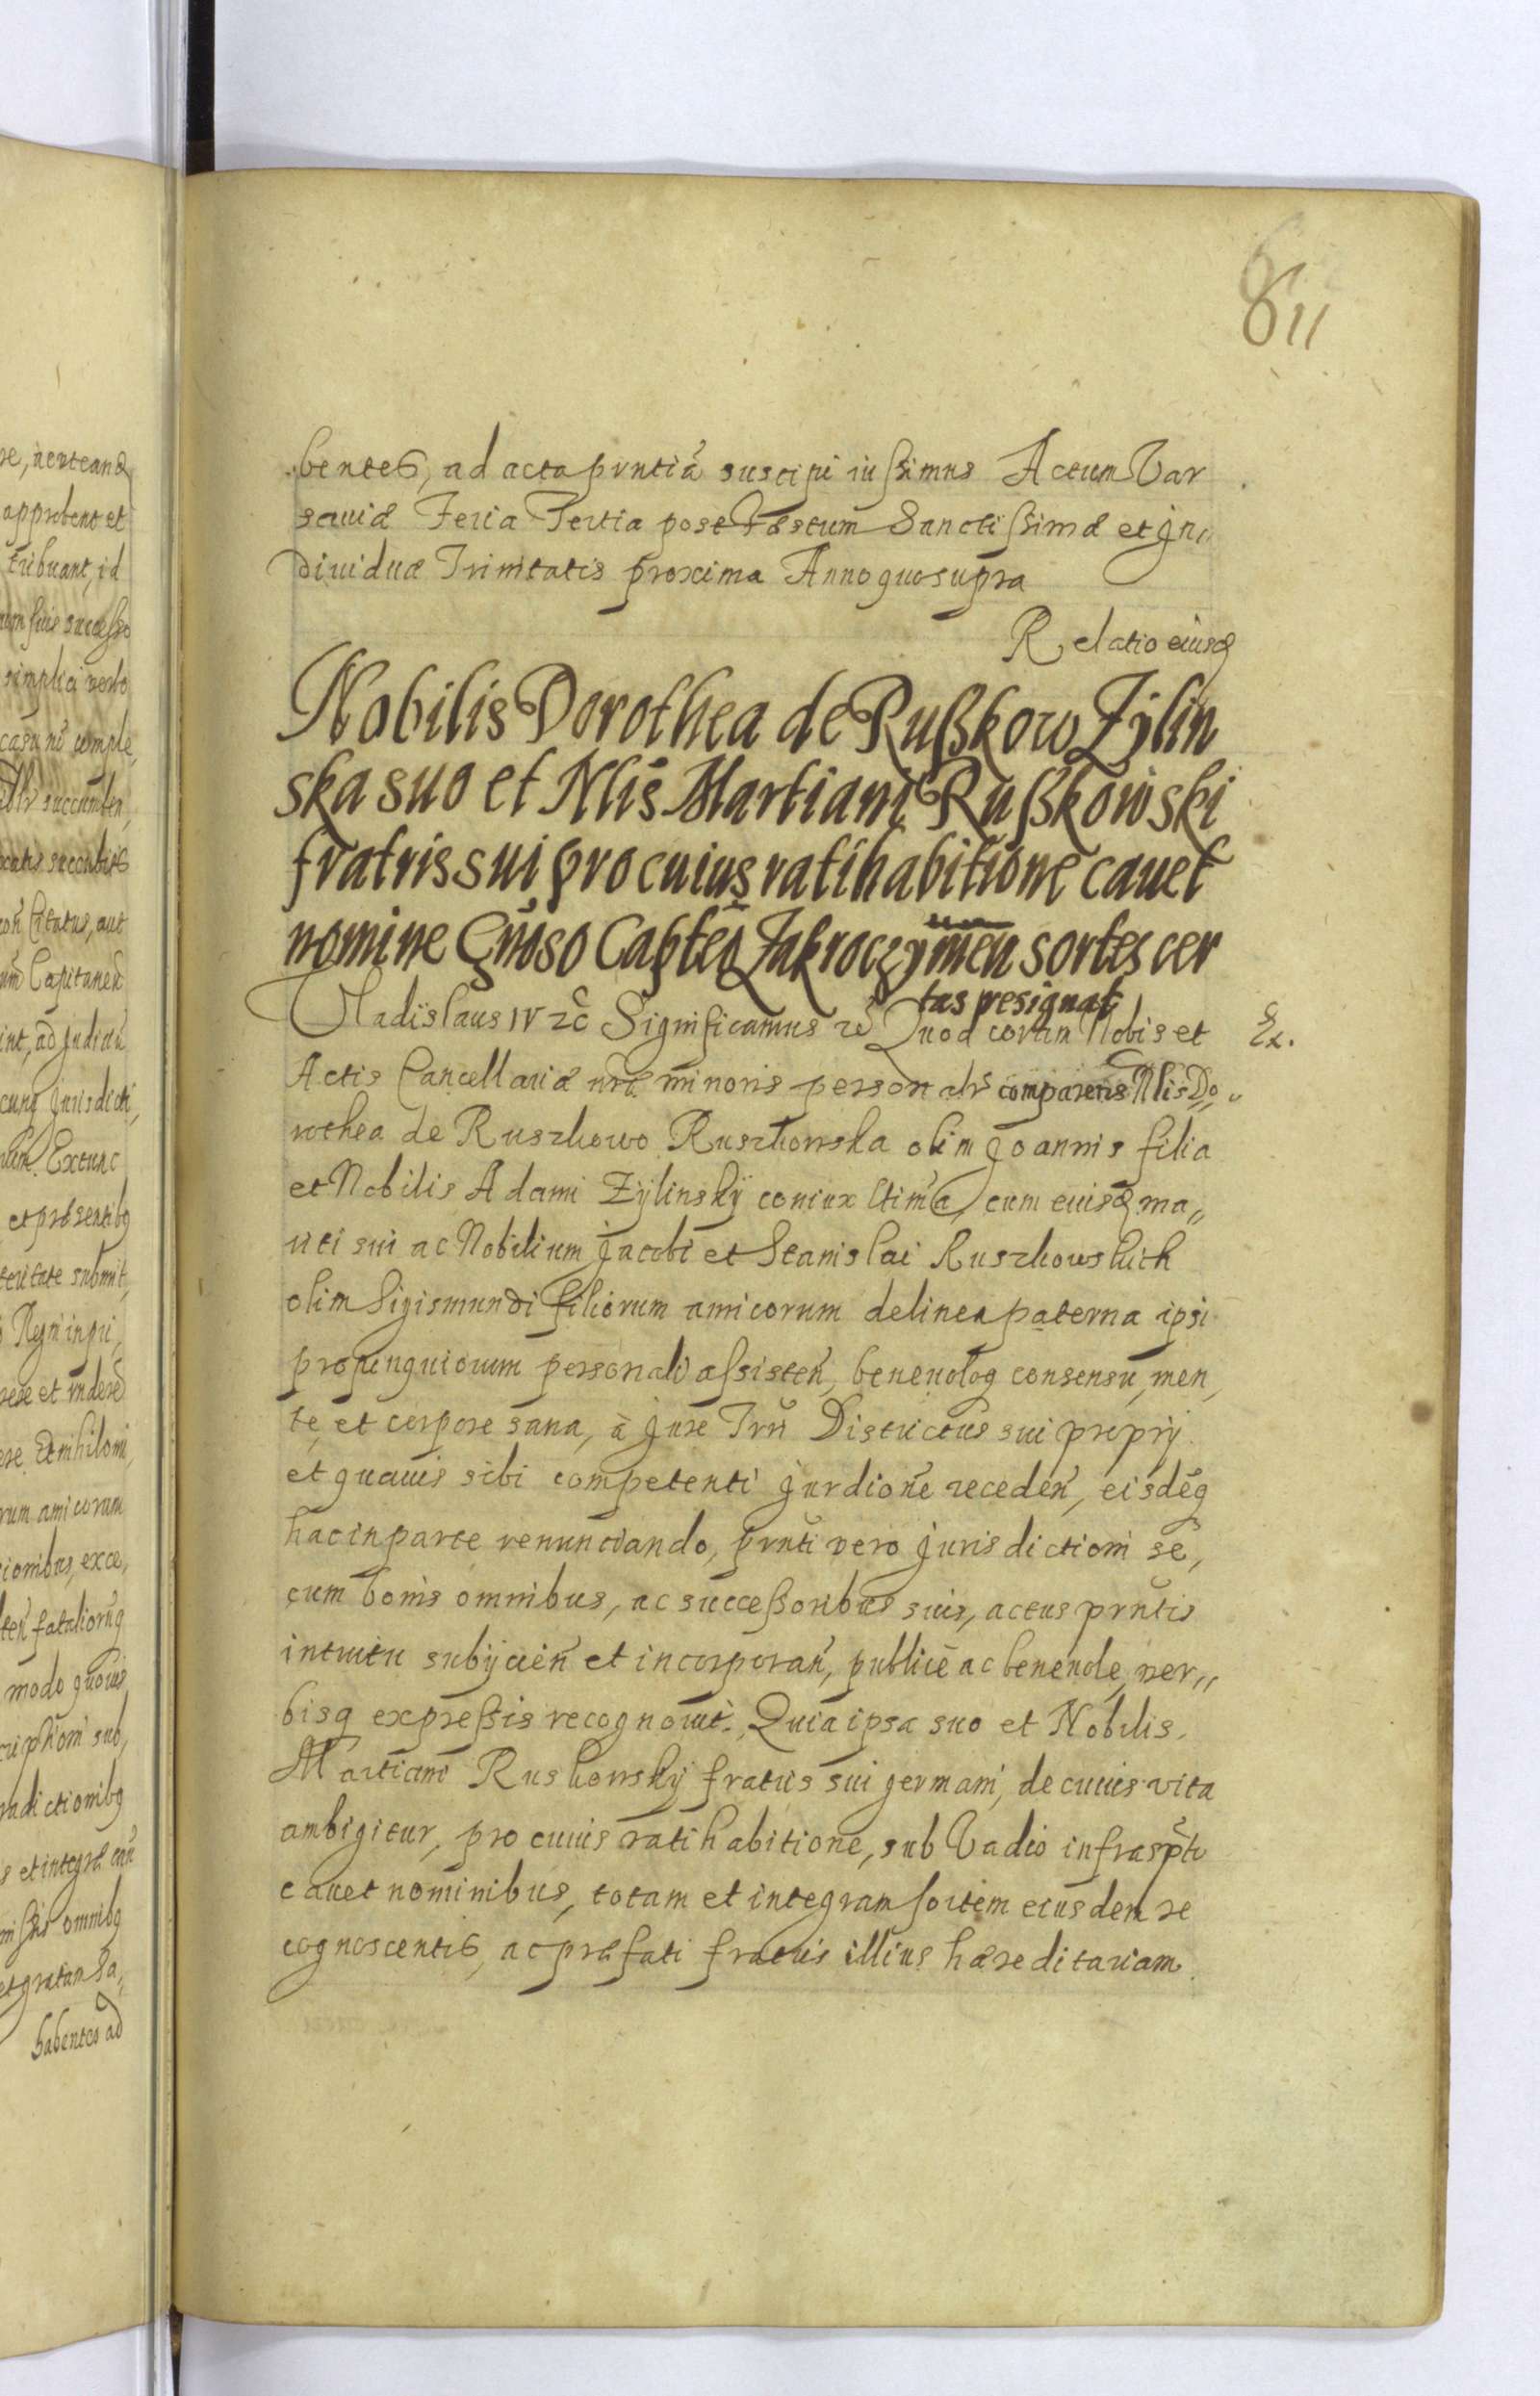 611
bentes, ad acta prntia suscipi iussimus Actum Var
saviæ Feria Tertia post Festum Sanctissimæ et Jn
dividuæ Trinitatis proxima Anno quo supra
Relatio eiusd
Nobilis Dorothea de Rußkow Zÿlin
ska suo et Nlis Martiani Rußkowski
fratris sui pro cuius ratihabitione cavet
nomine Gnoso Capteo Zakroczÿmen sortes cer
tas resignat
Vladislaus IV zc Significamus zc Quod coram Nobis et
Ex.
Actis Cancellariæ nræ minoris personalr comparens Nlis Do„
rothea de Ruszkowo Ruszkowska olim Joannis filia
et Nobilis Adami Zÿlinskÿ coniux ltima, cum eiusd ma„
riti sui ac Nobilium Jacobi et Stanislai Ruszkowskich
olim Sigismundi filiorum amicorum de linea paterna ipsi
propinquiorum personali assisten, benevoloq consensu, men,
te, et corpore sana, à Jure Trri Districtus sui proprÿ
et quavis sibi competenti Jurdione receden, eisdeq
hac in parte renunciando, prnti vero Jurisdictioni se,
cum bonis omnibus, ac successoribus suis, actus prntis
intuitu subÿcien et incorporan, publicè ac benevole, ver„
bisq expressis recognovit. Quia ipsa suo et Nobilis.
Martiani Ruskowskÿ fratris sui germani, de cuius vita
ambigitur, pro cuius ratihabitione, sub Vadio infraspto
cavet nominibus, totam et integram sortem eiusdem re
cognoscentis, ac præfati fratris illius hæreditariam